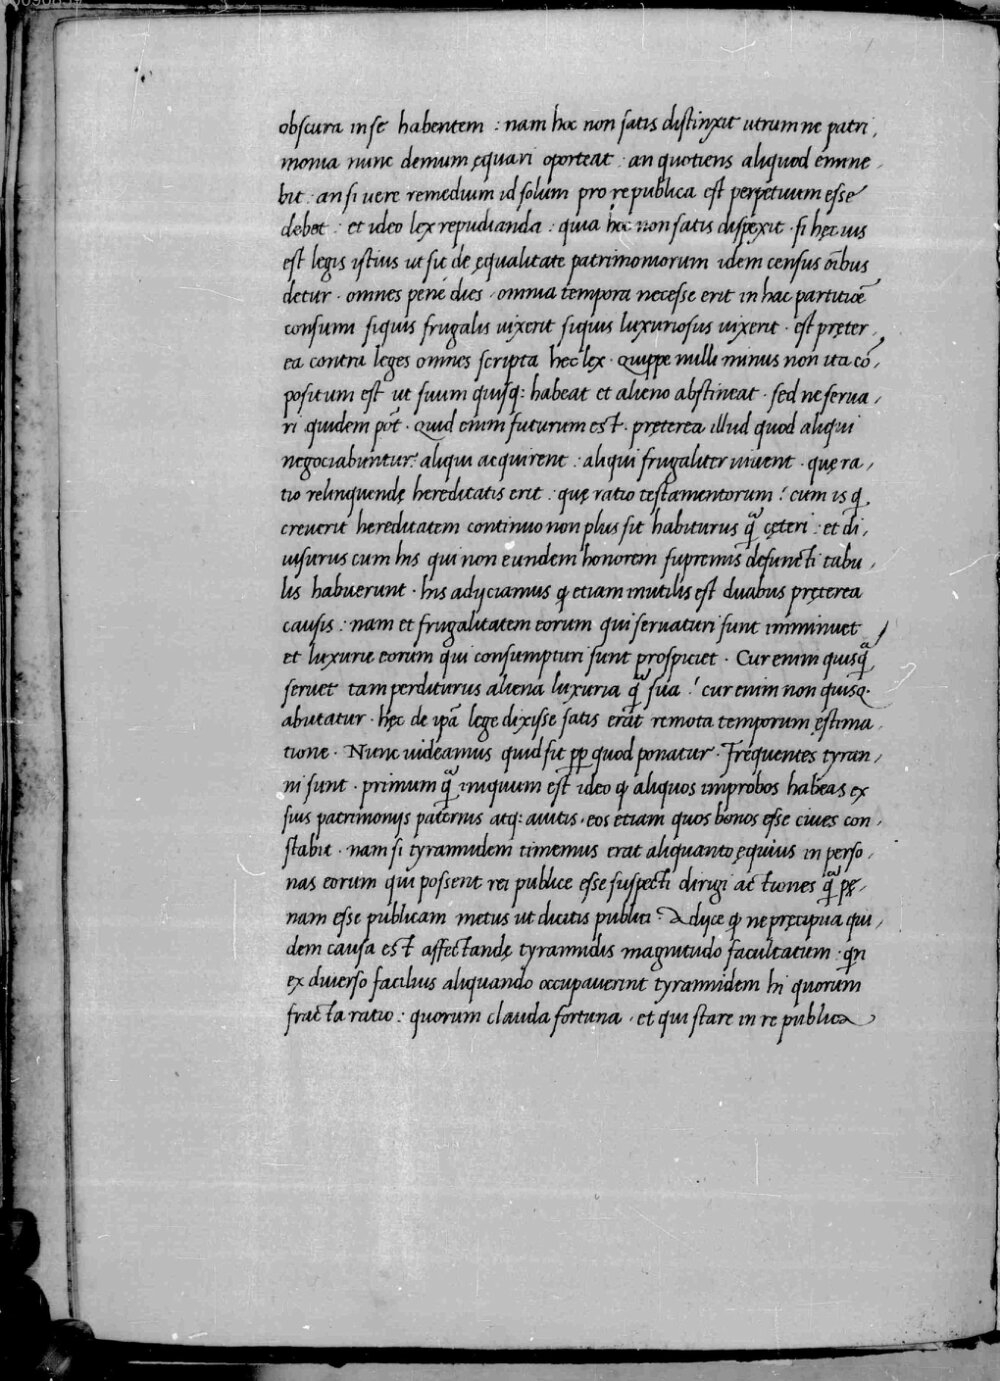 obscura in se habentem : nam hoc non satis distinxit utrumne patri,
monia nunc demum ęquari oporteat · an quotiens aliquod emine
bit · an si uere remedium id solum pro republica est perpetuum esse
debet : et ideo lex repudianda : quia hoc non satis dispexit · si hęc uis
est legis istius ut sit de ęqualitate patrimoniorum idem census oı̄bus
detur · omnes pene dies · omnia tempora necesse erit in hac partitiōe
consumi siquis frugalis uixerit siquis luxuriosus uixerit · est pręter,
ea contra leges omnes scripta hec lex · Quippe nulli minus non ita cō,
positum est ut suum quisq: habeat et alieno abstineat · sed ne serua,
ri quidem pōt · Quid enim futurum est · pręterea illud quod aliqui
negociabuntur: aliqui acquirent : aliqui frugaliter uiuent · quę ra,
tio relinquendę hereditatis erit : quę ratio testamentorum ? cum is ꝗ
creuerit hereditatem continuo non plus sit habiturus ꝗ̃ cęteri : et di,
uisurus cum his qui non eundem honorem supremis defuncti tabu,
lis habuerunt · his adyciamus ꝙ etiam inutilis est duabus pręterea
causis : nam et frugalitatem eorum qui seruaturi sunt imminuet
et luxurie eorum qui consumpturi sunt prospiciet · Cur enim quisꝗ̃
seruet tam perditurus aliena luxuria ꝗ̃ sua ? cur enim non quisq·
abutatur · hęc de ipā lege dixisse satis erat remota temporum ęstima
tione · Nunc uideamus quid sit ꝓp quod ponatur · Frequentes tyran,
ni sunt · primum ꝗ̃ iniquum est ideo ꝙ aliquos improbos habeas ex
suis patrimonijs paternis atq: auitis · eos etiam quos bonos esse ciues con,
stabit · nam si tyrannidem timemus erat aliquanto ęquius in perso,
nas eorum qui possent rei publice esse suspecti dirigi actiones ꝗ̃ pę,
nam esse publicam metus ut dicitis publici ? Adijce ꝙ ne pręcipua qui,
dem causa est affectandę tyrannidis magnitudo facultatum : qn̄
ex diuerso facilius aliquando occupauerint tyrannidem hi quorum
fracta ratio : quorum clauda fortuna · et qui stare in re publica